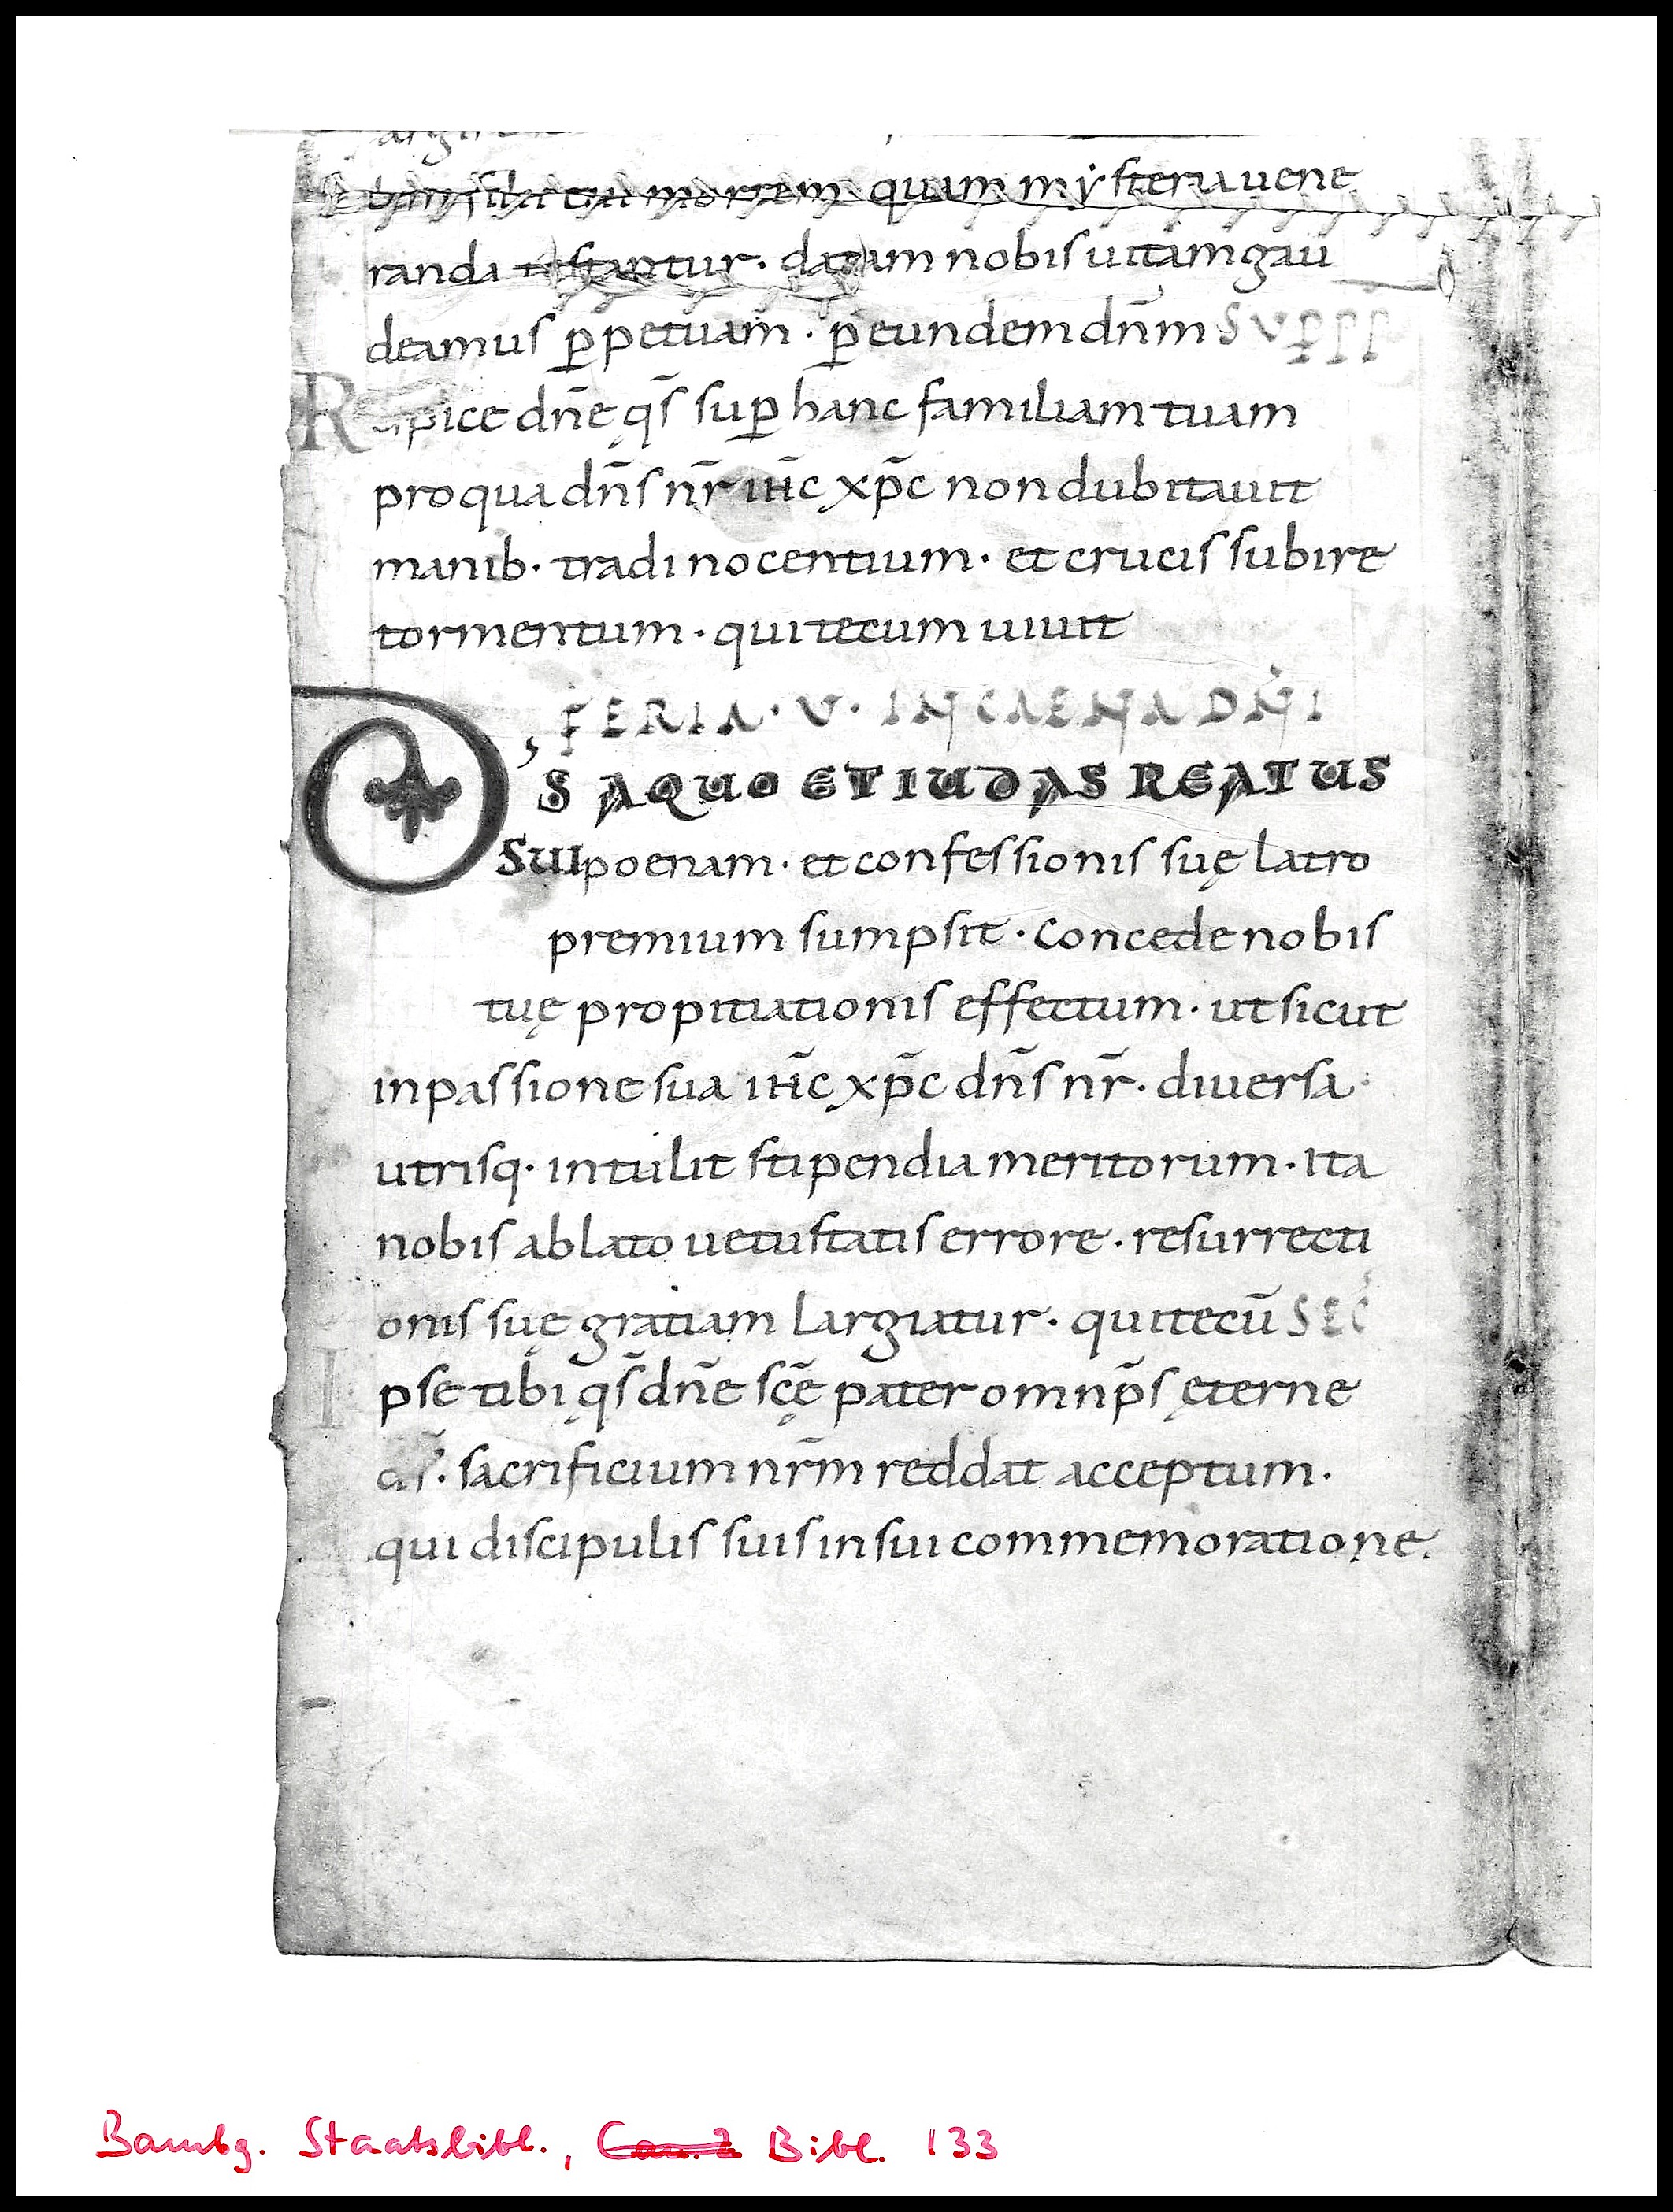 mortem · quam mẏsteria uene
randa testantur · datam nobis uitam gau
deamus p̲petuam · p̲ eundem dn̄m SUP̲ PP
Rspice dn̄e qs̄ sup̲ hanc familiam tuam
pro qua dn̄s nr̄ ih̄c xp̄c non dubitauit
manib · tradi nocentium · et crucis subire
tormentum · qui tecum uiuit
FERIA · V · IN CAENA DN̄I
DS A QUO ET IUDAS REATUS
SUI poenam · et confessionis suę latro
premium sumpsit · Concede nobis
tuę propitiationis effectum · ut sicut
in passione sua ih̄c xp̄c dn̄s nr̄ · diuersa
utrisq · intulit stipendia meritorum · Ita
nobis ablato uetustatis errore · resurrecti
onis suę gratiam largiatur · qui tecū SEC
Ipse tibi qs̄ dn̄e sc̄ę pater omnp̄s ęterne
ds̄ · sacrificium nr̄m reddat acceptum ·
qui discipulis suis in sui commemoratione
Bambg. Staatsbibl., Bibl. 133